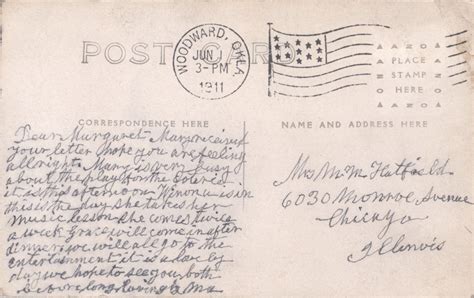 POST CARD
WOODWARD, OKLA.
JUN
3-PM
1911
AZO
PLACE
STAMP
HERE
AZO
CORRESPONDENCE HERE
NAME AND ADDRESS HERE
Dear Margaret Mary received
your letter hope you are feeling
allright Mary is very busy
about the play for the
it is this afternoon Winona is in
this is the day she takes her
music lesson she comes twice
a week Grace will come in after
dinner we will all go to the
entertainment it is a love ly
day we hope to see you both
before long lovingly Ma
Mrs M. M. Hatfield
6030 Monroe Avenue
Chicago
Illinois